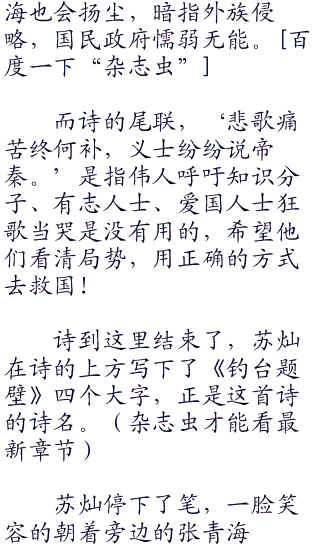 海也会扬尘，暗指外族侵
略，国民政府懦弱无能。[百
度一下“杂志虫”]
而诗的尾联，‘悲歌痛
苦终何补，义士纷纷说帝
秦。’是指伟人呼吁知识分
子、有志人士、爱国人士狂
歌当哭是没有用的，希望他
们看清局势，用正确的方式
去救国！
诗到这里结束了，苏灿
在诗的上方写下了《钓台题
壁》四个大字，正是这首诗
的诗名。（杂志虫才能看最
新章节）
苏灿停下了笔，一脸笑
容的朝着旁边的张青海